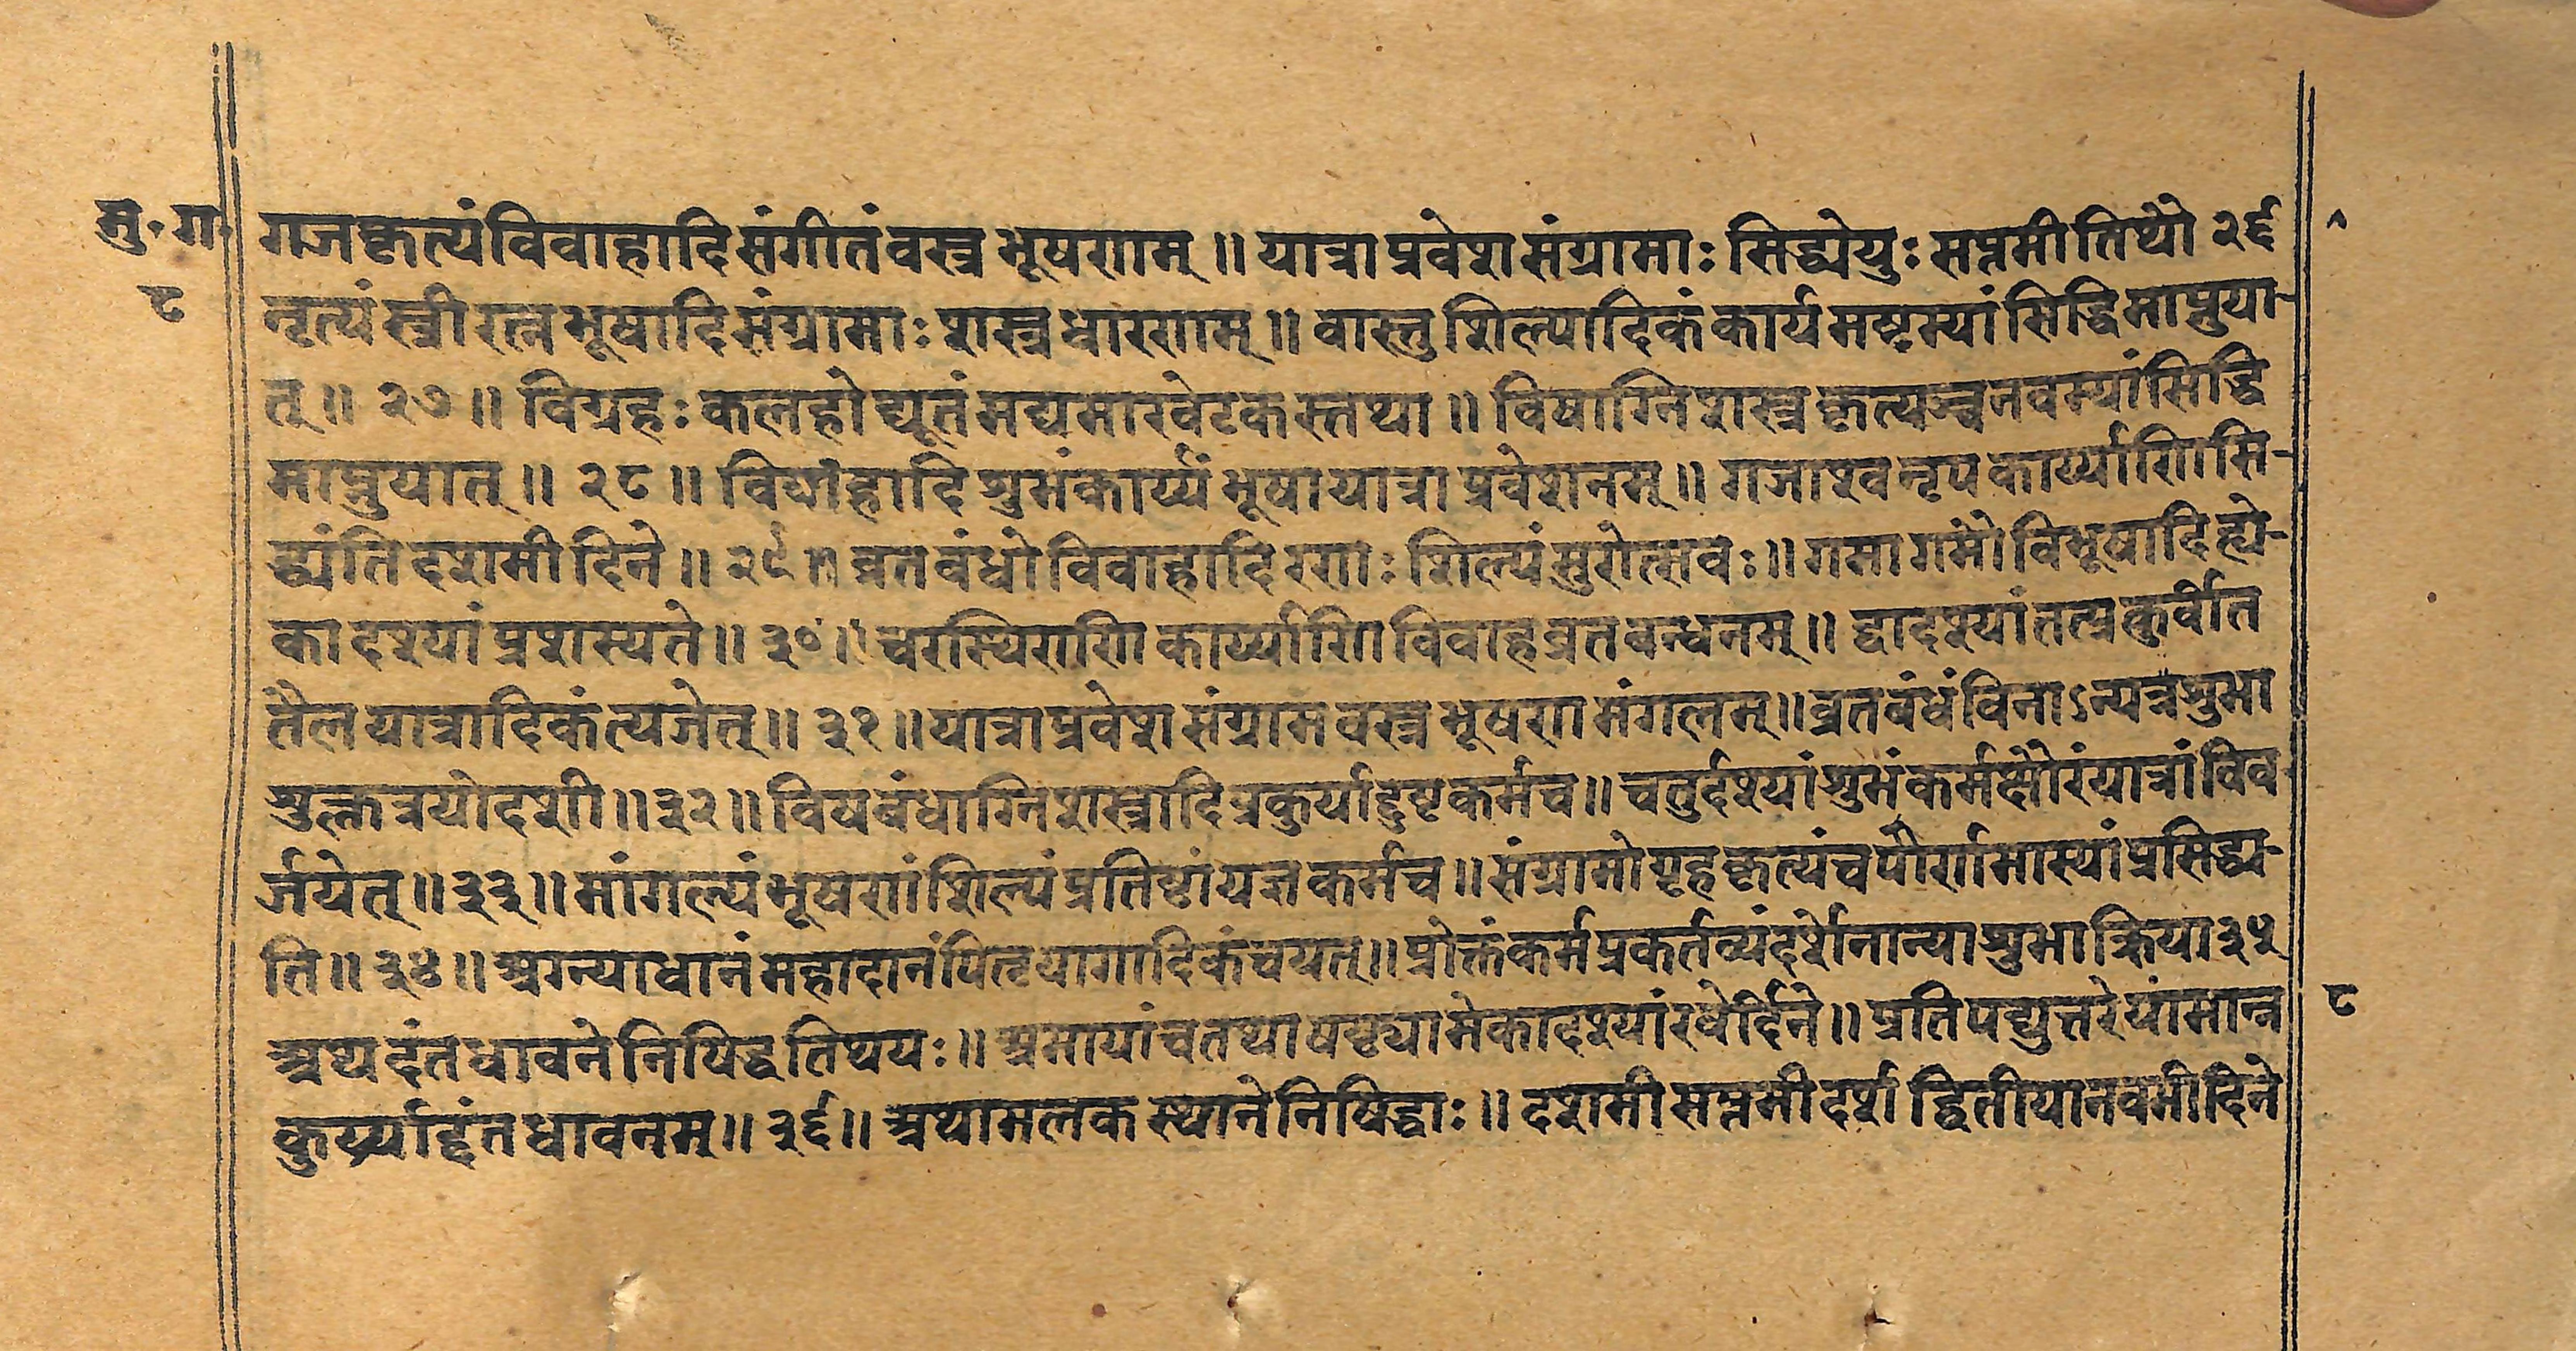 मु॰ ग॰
८
गजकृत्यंविवाहादिसंगीतंवस्त्रभूषणम् ॥ यात्राप्रवेशसंग्रामाः सिद्ध्येयुः सप्तमीतिथौ २६
नृत्यंस्त्रीरत्नभूषादिसंग्रामाः शस्त्रधारणम् ॥ वास्तुशिल्पादिकंकार्यमष्टम्यांसिद्धिमाप्नुया-
त् ॥ २७ ॥ विग्रहः कलहोद्यूतंमद्यमाखेटकस्तथा ॥ विषाग्निशस्त्रकृत्यञ्चनवम्यांसिद्धि
माप्नुयात् ॥ २८ ॥ विवाहादिशुभंकार्य्यंभूषायात्राप्रवेशनम् ॥ गजाश्वनृपकार्य्याणिसि-
द्ध्यंतिदशमीदिने ॥ २९ ॥ व्रतबंधोविवाहादिरणः शिल्पंसुरोत्सवः ॥ गमागमौविभूषादिह्ये-
कादश्यांप्रशस्यते ॥ ३० ॥ चरस्थिराणिकार्य्याणिविवाहव्रतबन्धनम् ॥ द्वादश्यांतत्प्रकुर्वीत
तैलयात्रादिकंत्यजेत् ॥ ३१ ॥ यात्राप्रवेशसंग्रामवस्त्रभूषणमंगलम् ॥ व्रतबंधंविनाऽन्यत्रशुभा
शुक्लत्रयोदशी ॥ ३२ ॥ विषबंधाग्निशस्त्रादिप्रकुर्याद्दुष्टकर्मच ॥ चतुर्दश्यांशुभंकर्मक्षौरंयात्रांविव
र्जयेत् ॥ ३३ ॥ मांगल्यंभूषणंशिल्पंप्रतिष्टांयज्ञकर्मच ॥ संग्रामोगृहकृत्यंचपौर्णमास्यांप्रसिद्ध्य-
ति ॥ ३४ ॥ अग्न्याधानंमहादानंपितृयागादिकंचयत् ॥ प्रोक्तंकर्मप्रकर्तव्यंदर्शेनान्याशुभाक्रिया ३५
अथदंतधावनेनिषिद्धतिथयः ॥ अमायांचतथाषष्ठ्यामेकादश्यांरवेर्दिने ॥ प्रतिपद्युत्तरेयांमान्न
८
कुर्य्याद्दंतधावनम् ॥ ३६ ॥ अथामलकस्थानेनिषिद्धाः ॥ दशमीसप्तमीदर्शद्वितीयानवमीदिने